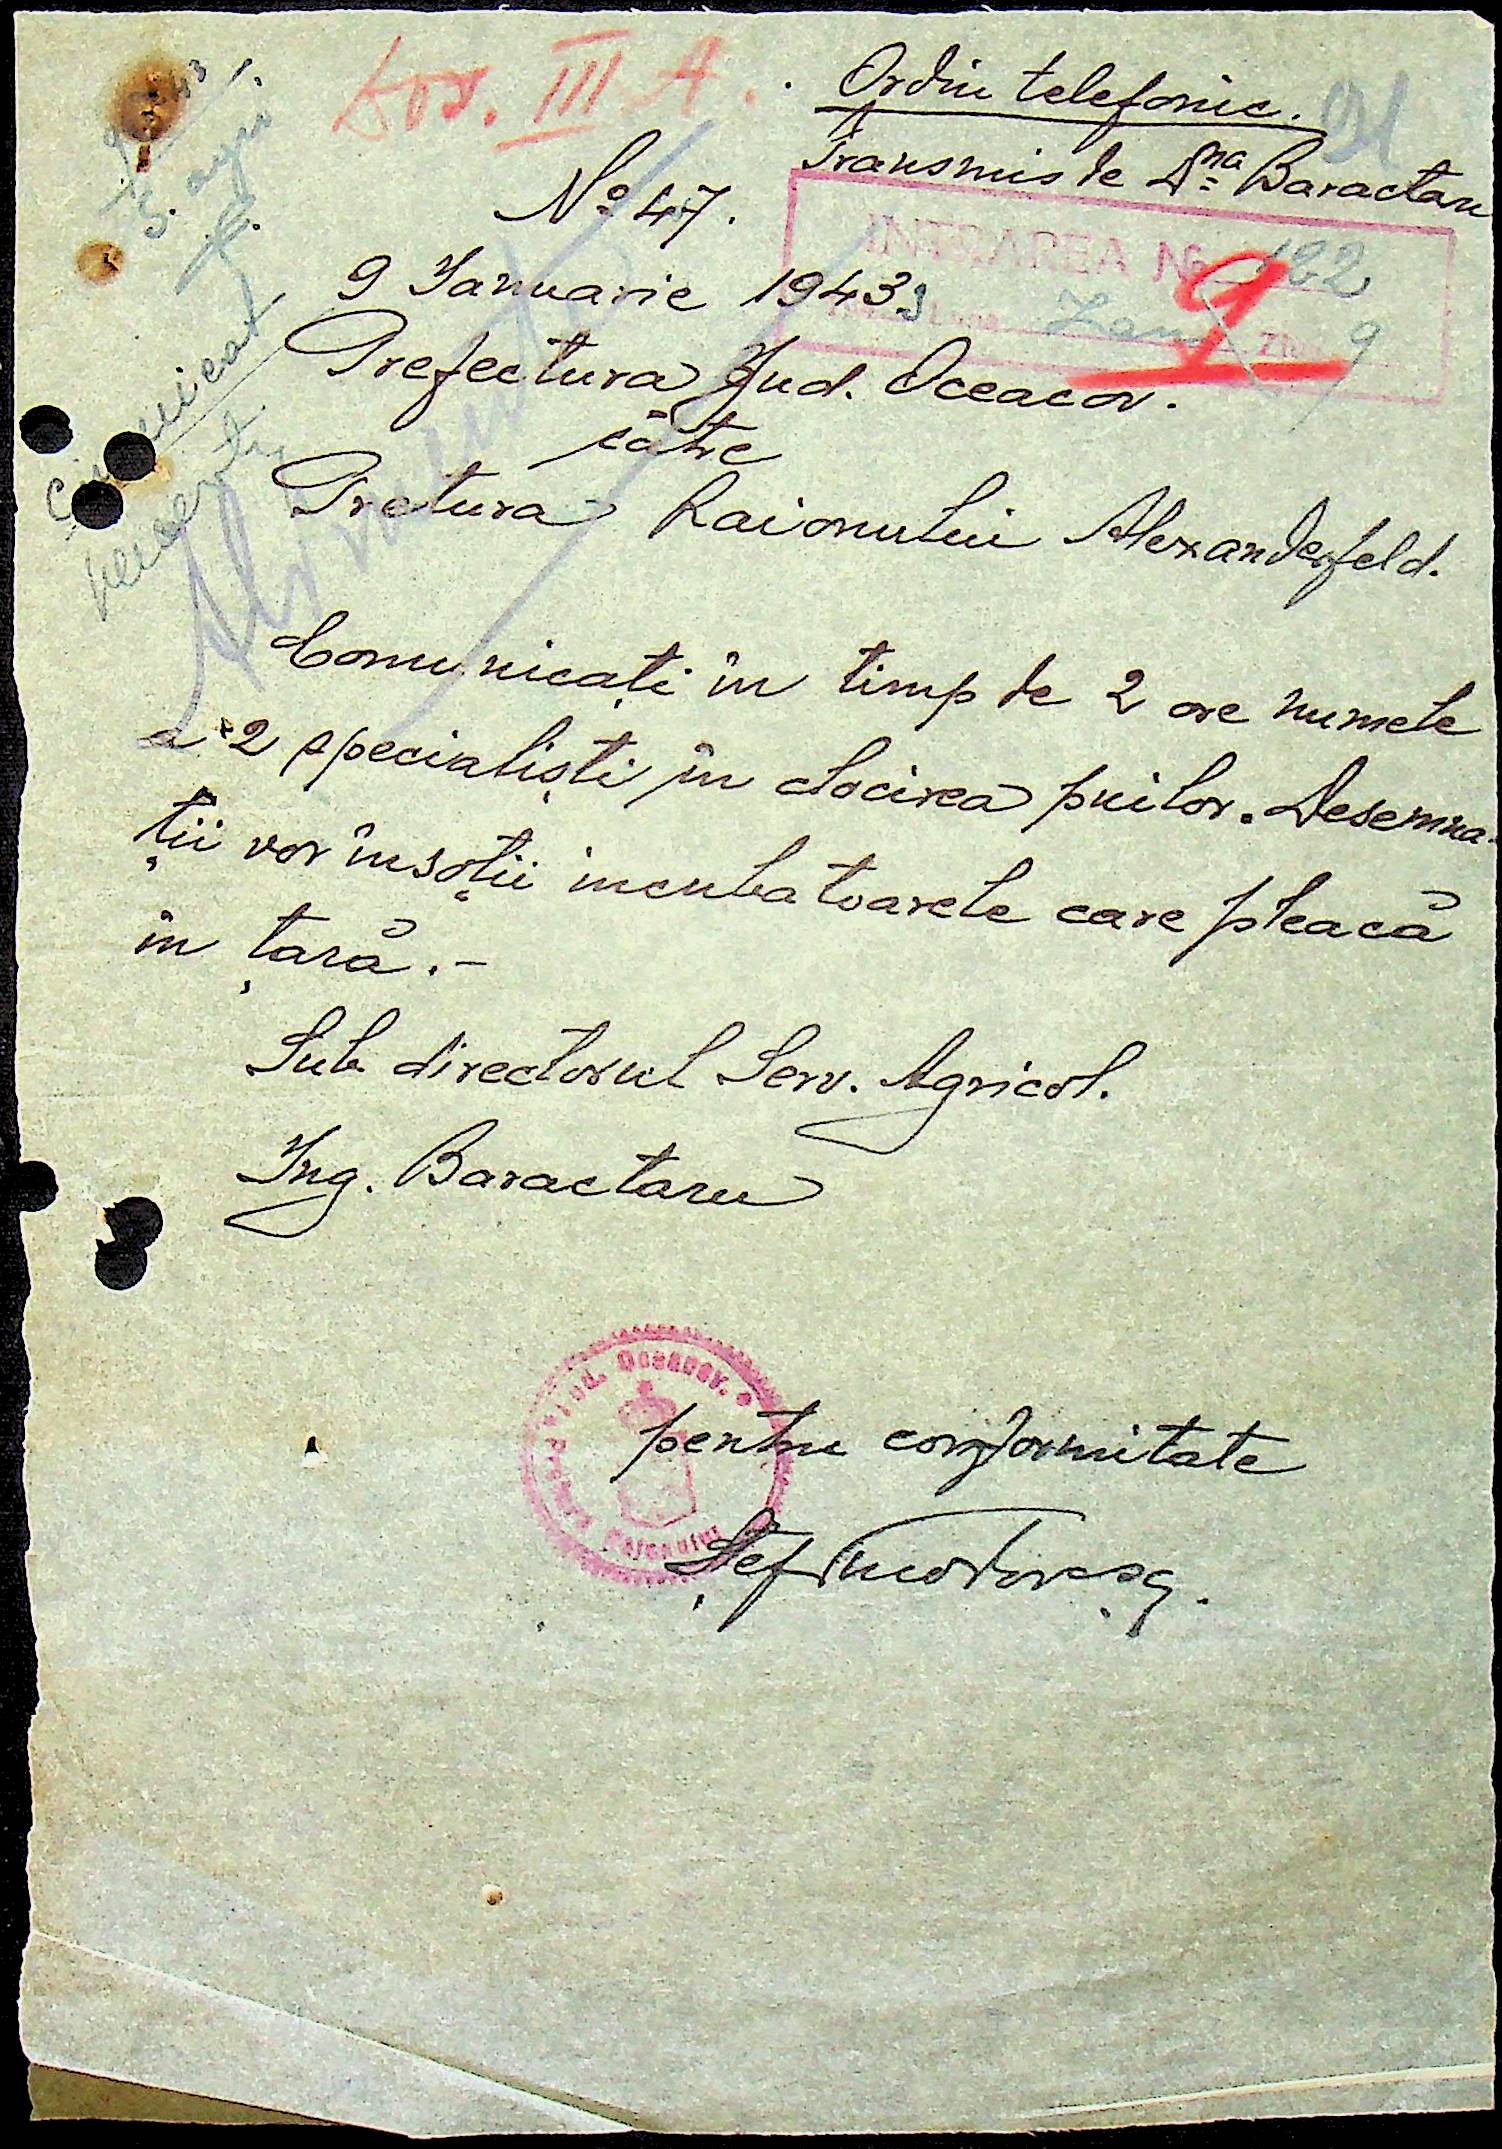 Dos. III A.
Ordin telefonic.
91
Transmis de Dna Baractaru
No 47.
INTRAREA No 182
Luna Ian Ziua 9
9
9 Ianuarie 1943
Prefectura Jud. Oceacov.
către
Pretura Raionului Alexanderfeld.
Comunicat
Comunicați în timp de 2 ore numele
a 2 specialiști în clocirea puilor. Desemna-
ții vor însoții incubatoarele care pleacă
în țară.-
Sub directorul Serv. Agricol.
Ing. Baractaru
Jud. Oceacov.
Raionului
pentru conformitate
Șef Theodorescu.